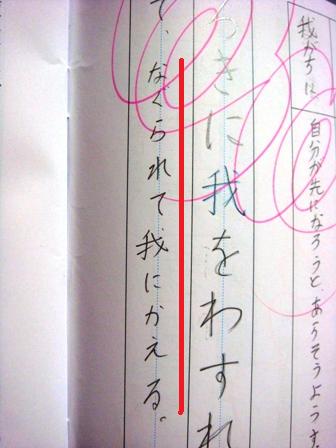 我がちは
自分が先になろうと、あらそうようす
きに我をわすれ
て、なぐられて、我にかえる。